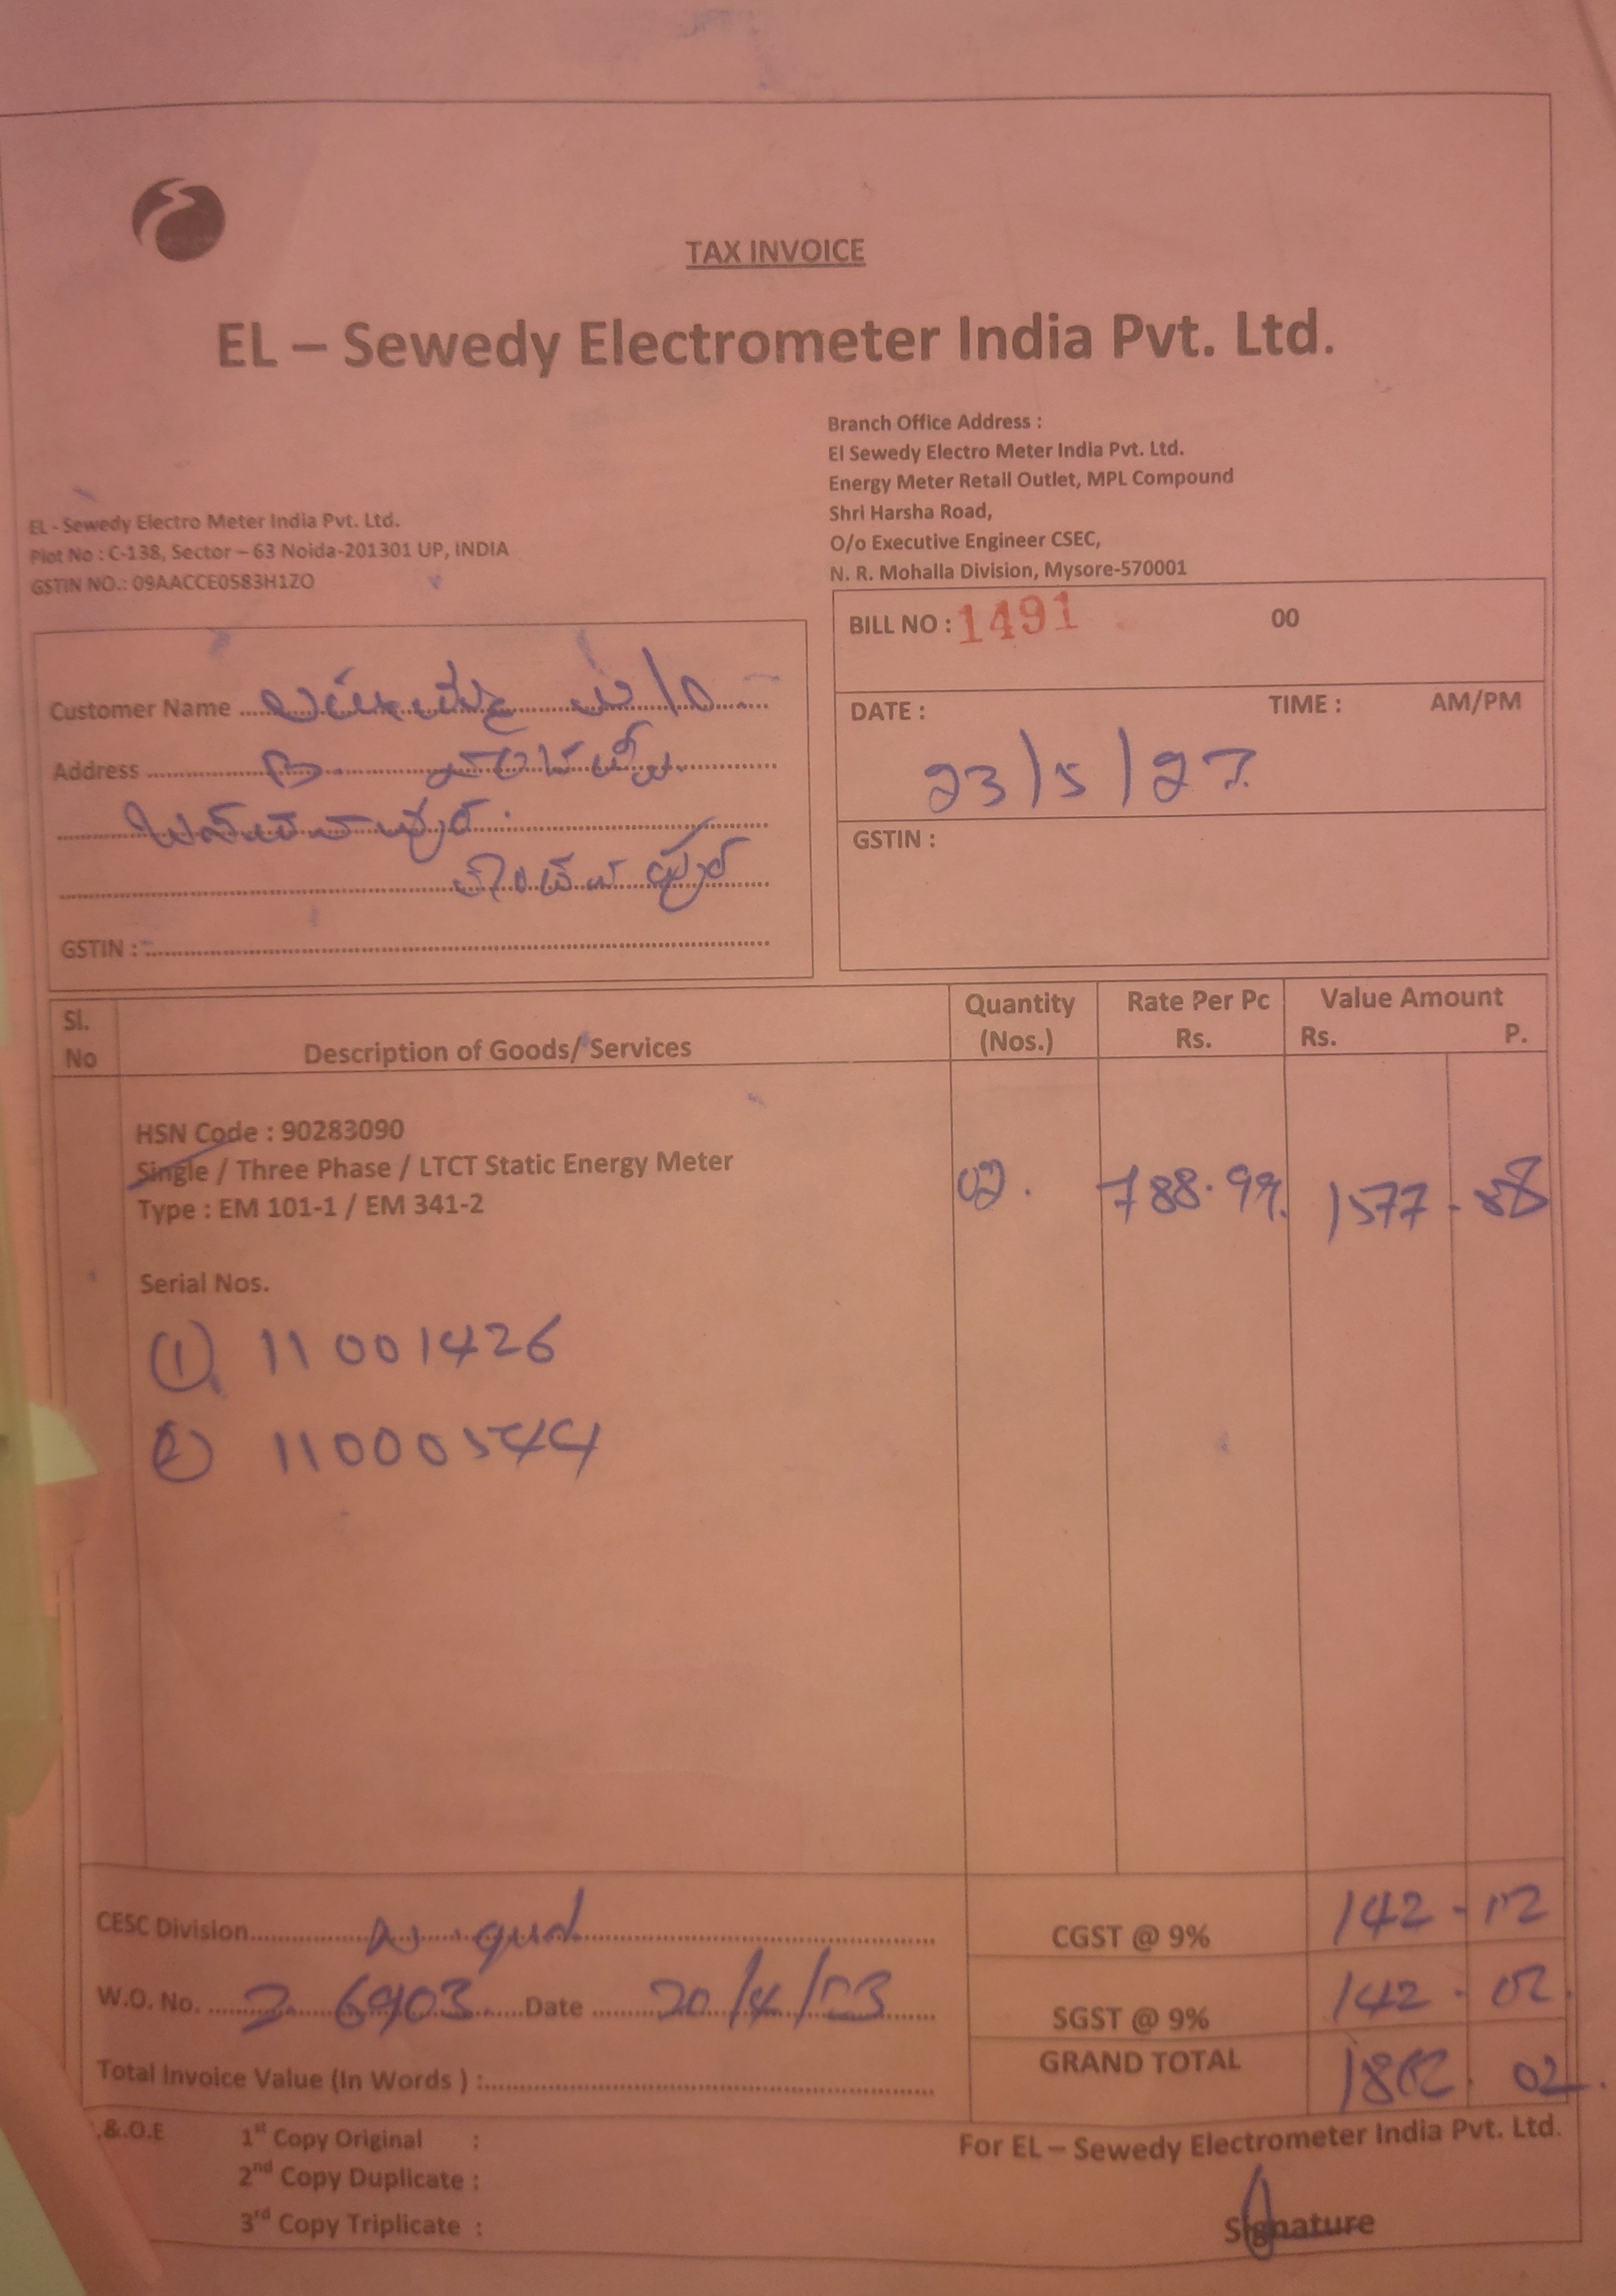 TAX INVOICE
EL – Sewedy Electrometer India Pvt. Ltd.
Branch Office Address :
El Sewedy Electro Meter India Pvt. Ltd.
Energy Meter Retail Outlet, MPL Compound
Shri Harsha Road,
O/o Executive Engineer CSEC,
N. R. Mohalla Division, Mysore-570001
EL - Sewedy Electro Meter India Pvt. Ltd.
Plot No : C-138, Sector – 63 Noida-201301 UP, INDIA
GSTIN NO.: 09AACCE0583H1ZO
BILL NO : 1491 00
Customer Name
Address
GSTIN :
DATE : TIME : AM/PM
23/5/
GSTIN :
Sl. No Description of Goods/ Services Quantity (Nos.) Rate Per Pc Rs. Value Amount Rs. P.
HSN Code : 90283090
Single / Three Phase / LTCT Static Energy Meter
Type : EM 101-1 / EM 341-2
02. 788.99 1577 -
Serial Nos.
(1) 11001426
(2) 11000544
CESC Division
CGST @ 9% 142 -
W.O. No. Date 20/4/
SGST @ 9% 142 - 02
Total Invoice Value (In Words ) :
GRAND TOTAL 02
.&.O.E
1st Copy Original :
2nd Copy Duplicate :
3rd Copy Triplicate :
For EL – Sewedy Electrometer India Pvt. Ltd.
Signature